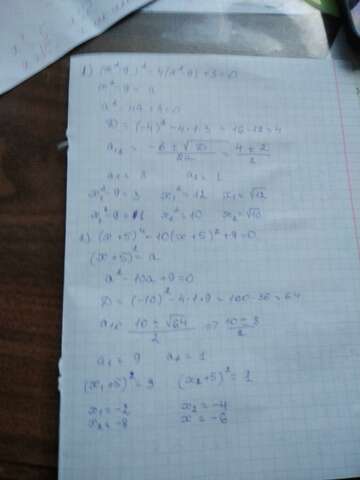 1) (x²-9)²-4(x²-9)+3=0
x²-9=a
a²-4a+3=0
D=(-4)²-4·1·3=16-12=4
a₁,₂=(-b±√D)/2a=(4±2)/2
a₁=3 a₂=1
x₁²-9=3 x₁²=12 x₁=√12
x₂²-9=1 x₂²=10 x₂=√10
2) (x+5)⁴-10(x+5)²+9=0
(x+5)²=a
a²-10a+9=0
D=(-10)²-4·1·9=100-36=64
(10±√64)/2
a₁=9 a₂=1
(x₁+5)²=9 (x₂+5)²=1
x₁=-2 x₂=-4
x₂=-8 x=-6